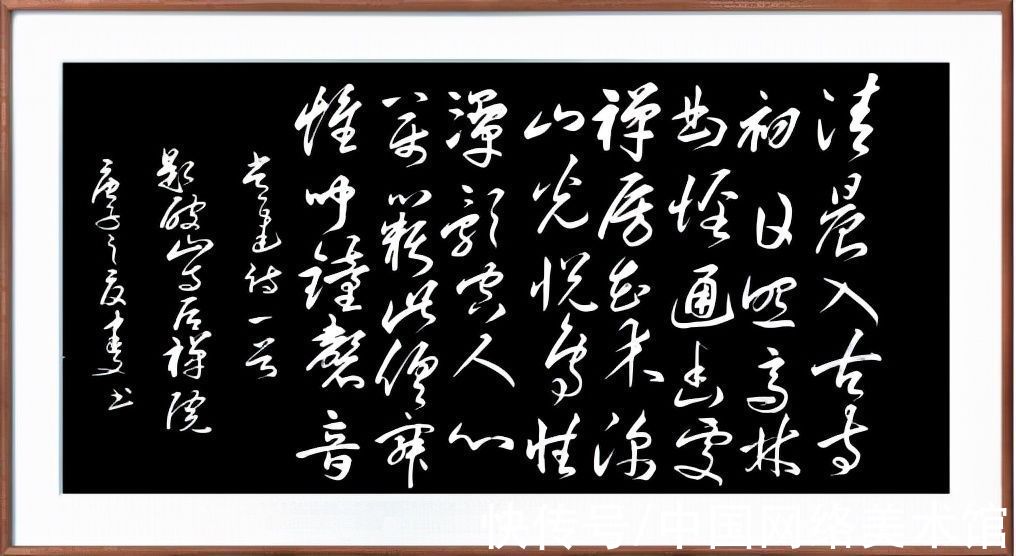 清晨入古寺
初日照高林
曲径通幽處
禅房花木深
山光悦鸟性
潭影空人心
萬籁此俱寂
惟闻鐘磬音
常建诗一首
题破山寺后禅院
庚子之夏 书
快传号/中国网络美术馆